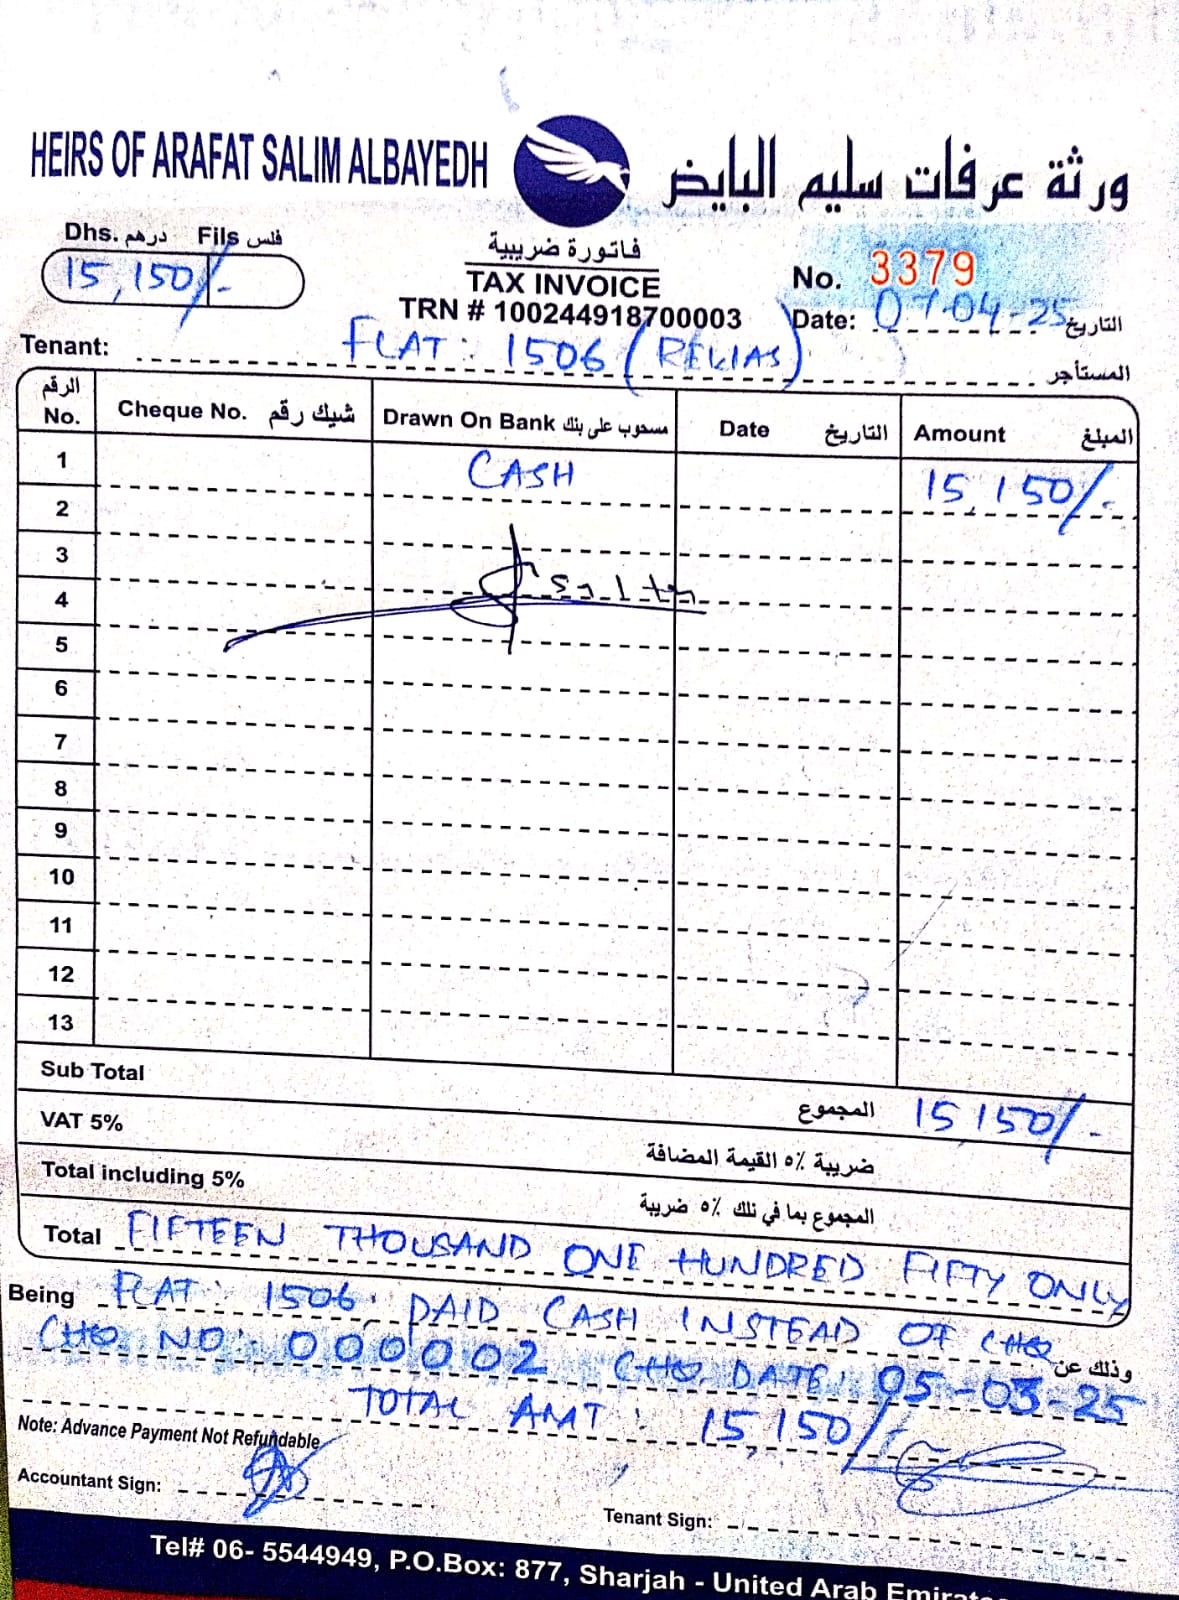 HEIRS OF ARAFAT SALIM ALBAYEDH
ورثة عرفات سليم البايض
Dhs. درهم Fils فلس
15,150/-
فاتورة ضريبية
TAX INVOICE
TRN # 100244918700003
No. 3379
Date: 07-04-25 التاريخ
Tenant: FLAT: 1506 (RELIAS) المستأجر
الرقم No. Cheque No. شيك رقم Drawn On Bank مسحوب على بنك Date التاريخ Amount المبلغ
1 CASH 15,150/-
2
3
4
5
6
7
8
9
10
11
12
13
Sub Total المجموع 15,150/-
VAT 5% ضريبة ٥٪ القيمة المضافة
Total including 5% المجموع بما في ذلك ٥٪ ضريبة
Total FIFTEEN THOUSAND ONE HUNDRED FIFTY ONLY
Being FLAT: 1506, PAID CASH INSTEAD OF CHQ وذلك عن
CHQ. NO: 000002 CHQ. DATE: 05-03-25
TOTAL AMT: 15,150/-
Note: Advance Payment Not Refundable
Accountant Sign:
Tenant Sign:
Tel# 06- 5544949, P.O.Box: 877, Sharjah - United Arab